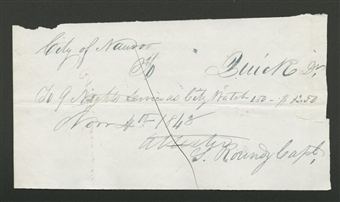 City of Nauvoo
To Quick Dr.
To 9 Nights service as City Watch 1.50 - $ 13.50
Nov 4th 1843
Attest
S. Roundy Capt,